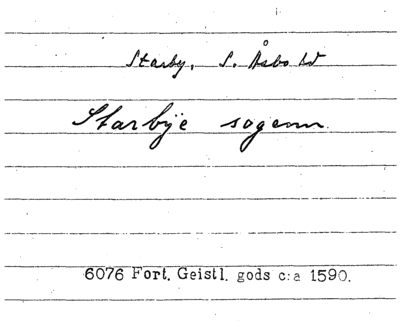 Starby, S. Åsbo hd
Starbÿe sogenn.
6076 Fort. Geistl. gods c:a 1590.